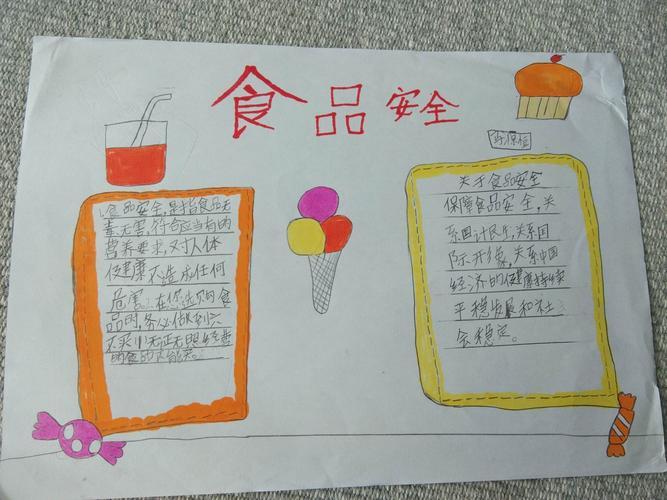 食品安全
1.食品安全,是指食品无
毒无害,符合应当有的
营养要求,对人体
健康不造成任何
危害。2.在你选购食
品时,务必做到六
不买 1.无证无照经营
的食品不能买。
关于食品安全
保障食品安全,关
系国计民生,关系国
际形象,关系中国
经济的健康持续
平稳发展和社
会稳定。